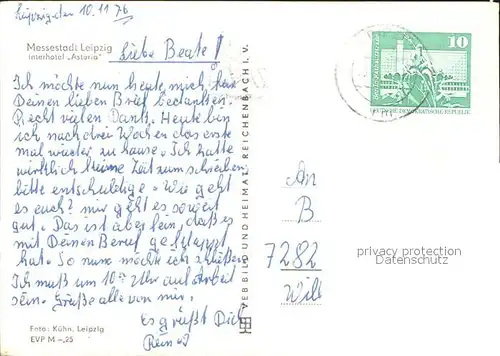 Leipzig den 10.11.76
Messestadt Leipzig
Interhotel „Astoria"
Liebe Beate!
Ich möchte nun heute mich für
Deinen lieben Brief bedanken.
Recht vielen Dank. Heute bin
ich nach drei Wochen das erste
mal wieder zu hause. Ich hatte
wirklich keine Zeit zum schreiben
bitte entschuldige. Wie geht
es euch? mir geht es soweit
gut. Das ist aber fein, daß es
mit Deinen Beruf geklappt
hat. So nun möchte ich schließen
Ich muß um 10 Uhr auf Arbeit
sein. Grüße alle von mir,
Es grüßt Dich
Foto: Kühn, Leipzig
EVP M –,25
VEB BILD UND HEIMAT REICHENBACH I. V.
10
DEUTSCHE DEMOKRATISCHE REPUBLIK
An
B
7282
Will
privacy protection
Datenschutz